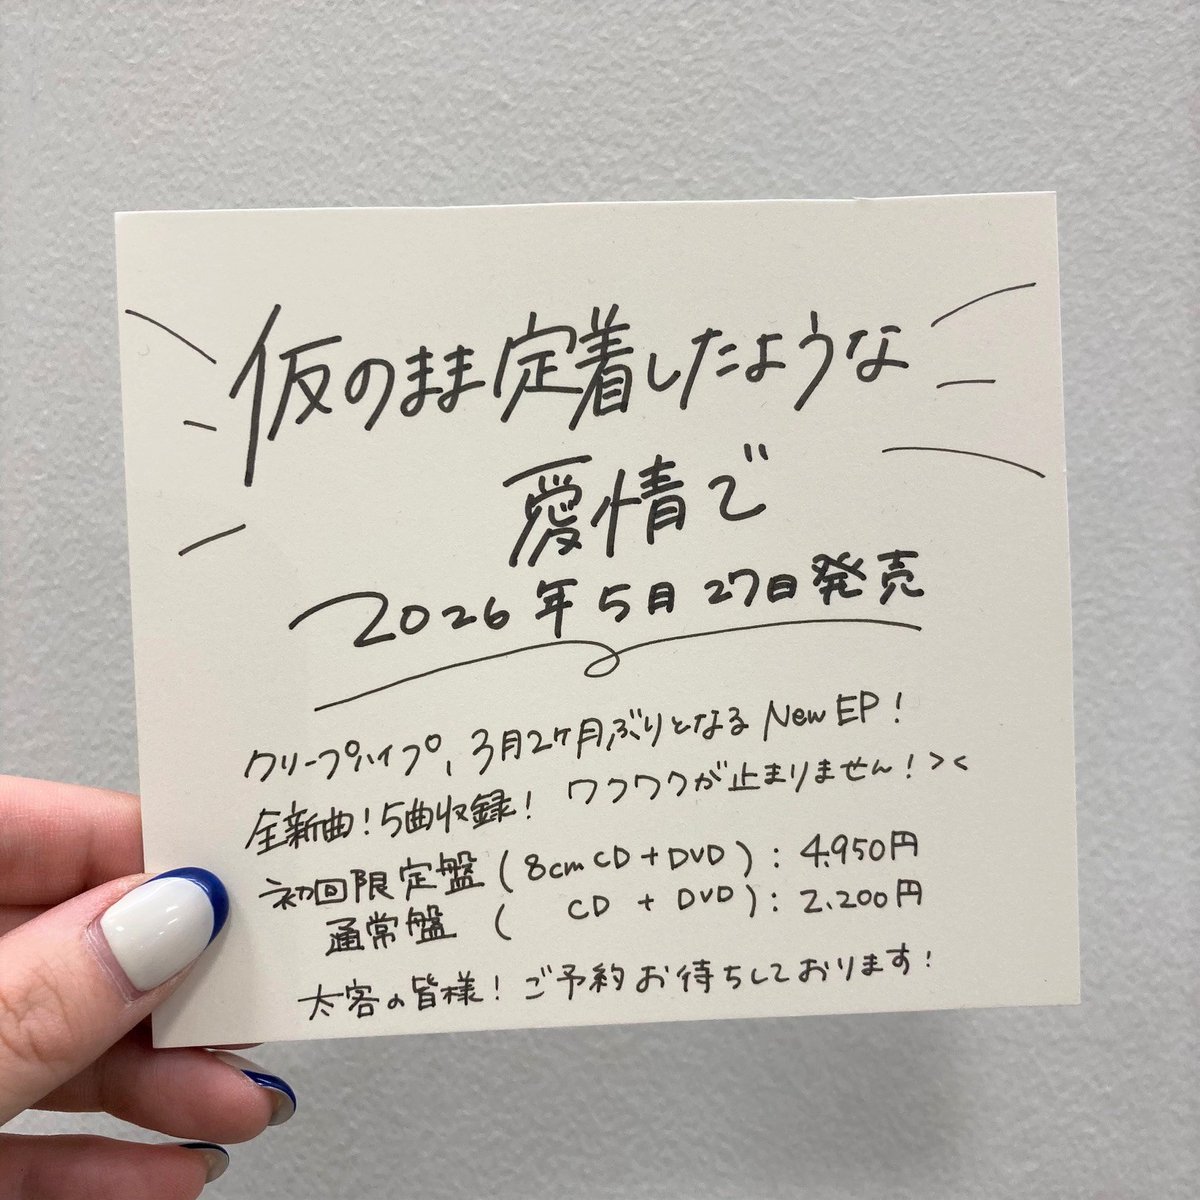 仮のまま定着したような
愛情で
2026年5月27日発売
クリープハイプ、3月2ヶ月ぶりとなるNew EP!
全新曲!5曲収録! ワクワクが止まりません!><
初回限定盤(8cmCD+DVD):4.950円
通常盤( CD + DVD):2.200円
太客の皆様!ご予約お待ちしております!